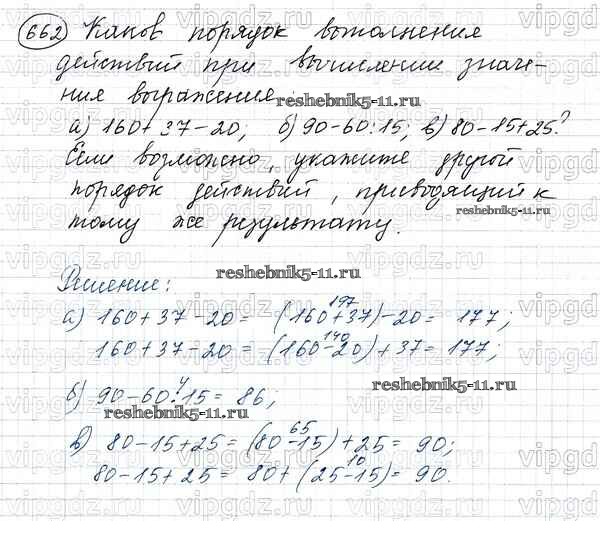 662 Каков порядок выполнения
действий при вычислении значе-
ния выражения
reshebnik5-11.ru
а) 160+37-20; б) 90-60:15; в) 80-15+25?
Если возможно, укажите другой
порядок действий, приводящий к
reshebnik5-11.ru
тому же результату.
Решение:
reshebnik5-11.ru
197
а) 160+37-20= (160+37)-20= 177;
140
160+37-20= (160-20)+37= 177;
4
б) 90-60:15= 86;
reshebnik5-11.ru
reshebnik5-11.ru
65
в) 80-15+25= (80-15)+25= 90;
10
80-15+25= 80+(25-15)= 90.
vipgdz.ru